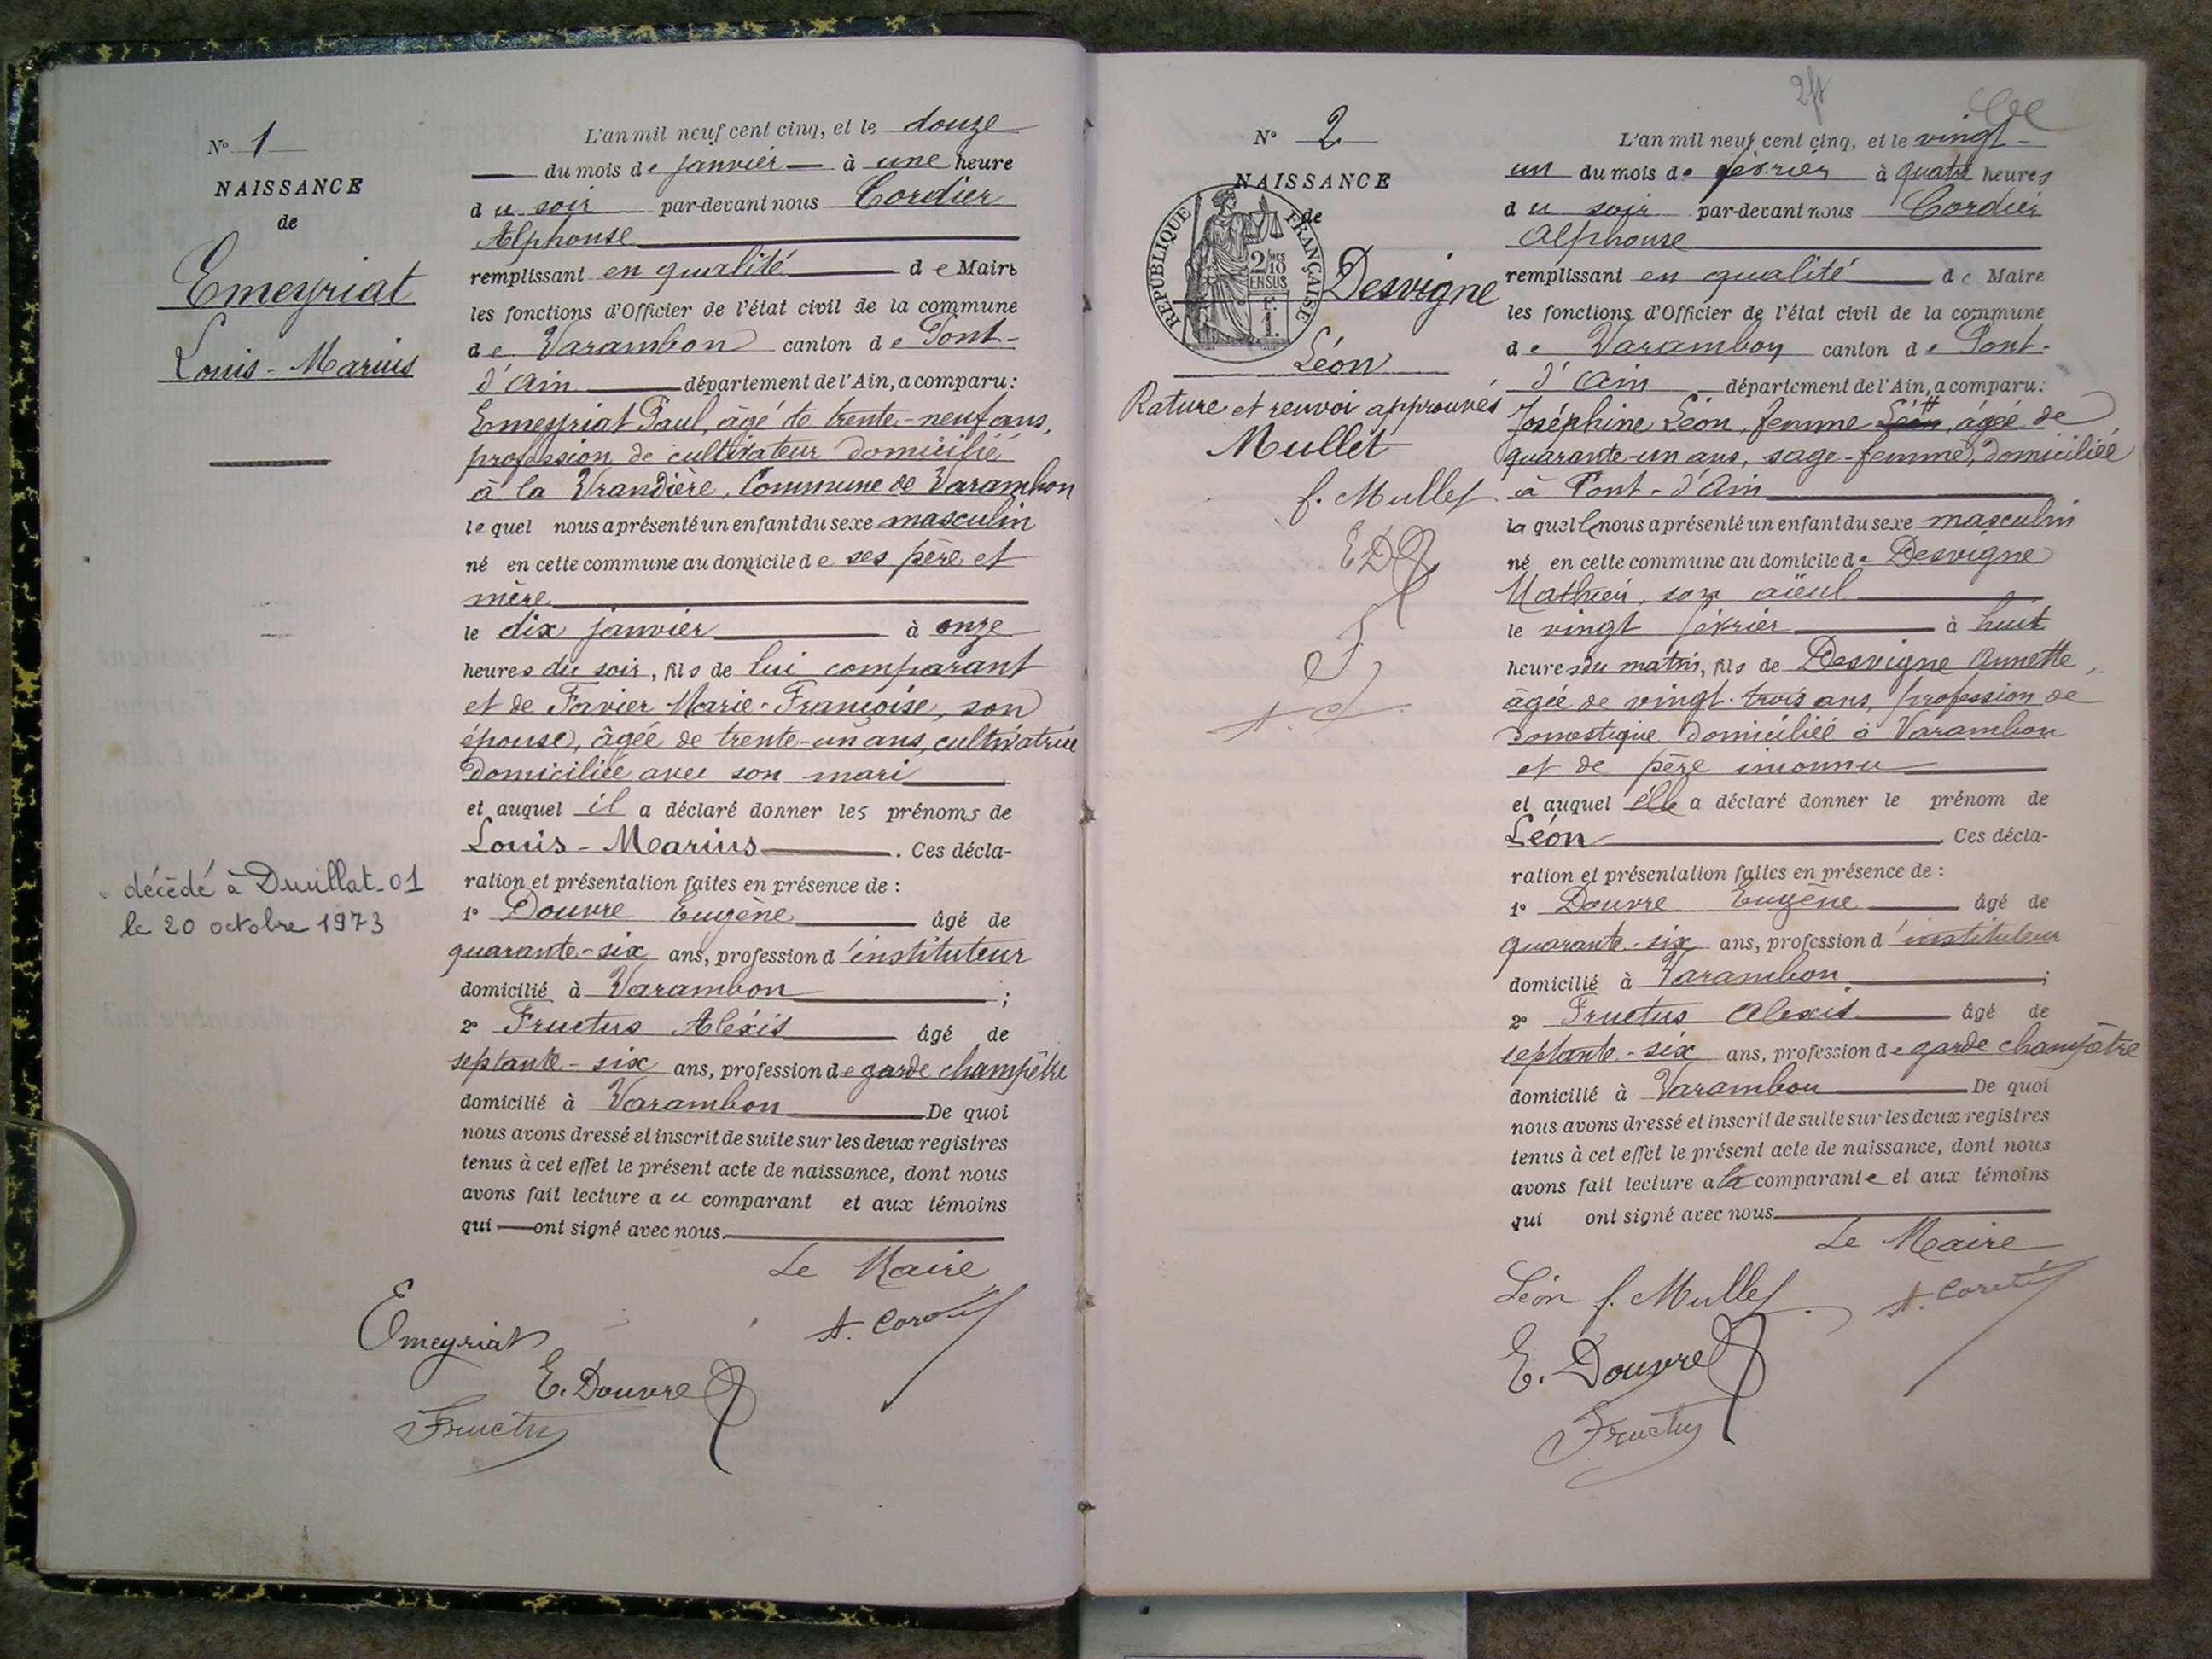 N° 1
NAISSANCE
de
Emeyriat
Louis-Marius
décédé à Druillat-01
le 20 octobre 1973
L'an mil neuf cent cinq, et le douze
du mois de janvier à une heure
du soir par-devant nous Cordier
Alphonse
remplissant en qualité de Maire
les fonctions d'Officier de l'état civil de la commune
de Varambon canton de Pont-
d'Ain département de l'Ain, a comparu:
Emeyriat Paul, âgé de trente-neuf ans,
profession de cultivateur domicilié
à la Vrandière, Commune de Varambon
lequel nous a présenté un enfant du sexe masculin
né en cette commune au domicile de ses père et
mère
le dix janvier à onze
heures du soir, fils de lui comparant
et de Favier Marie-Françoise, son
épouse, âgée de trente-un ans, cultivatrice
domiciliée avec son mari
et auquel il a déclaré donner les prénoms de
Louis-Marius. Ces décla-
ration et présentation faites en présence de :
1° Douvre Eugène âgé de
quarante-six ans, profession d'instituteur
domicilié à Varambon ;
2° Fructus Aléxis âgé de
septante-six ans, profession de garde champêtre
domicilié à Varambon De quoi
nous avons dressé et inscrit de suite sur les deux registres
tenus à cet effet le présent acte de naissance, dont nous
avons fait lecture au comparant et aux témoins
qui ont signé avec nous.
Le Maire
Emeyriat
A. Cordier
E. Douvre
Fructus
N° 2
NAISSANCE
de
RÉPUBLIQUE FRANÇAISE
2/10 EN SUS
F.
1.
Desvigne
Léon
Rature et renvoi approuvés
Mullet
f. Mullet
ED
F
A. C
L'an mil neuf cent cinq, et le vingt-
un du mois de février à quatre heures
du soir par-devant nous Cordier
Alphonse
remplissant en qualité de Maire
les fonctions d'Officier de l'état civil de la commune
de Varambon canton de Pont-
d'Ain département de l'Ain, a comparu:
Joséphine Léon, femme Léon, âgée de
quarante-un ans, sage-femme, domiciliée
à Pont-d'Ain
laquelle nous a présenté un enfant du sexe masculin
né en cette commune au domicile de Desvigne
Mathieu, son aïeul
le vingt février à huit
heures du matin, fils de Desvigne Annette,
âgée de vingt-trois ans, profession de
domestique domiciliée à Varambon
et de père inconnu
et auquel elle a déclaré donner le prénom de
Léon. Ces décla-
ration et présentation faites en présence de :
1° Douvre Eugène âgé de
quarante-six ans, profession d'instituteur
domicilié à Varambon ;
2° Fructus Alexis âgé de
septante-six ans, profession de garde champêtre
domicilié à Varambon De quoi
nous avons dressé et inscrit de suite sur les deux registres
tenus à cet effet le présent acte de naissance, dont nous
avons fait lecture à la comparante et aux témoins
qui ont signé avec nous.
Le Maire
Léon f. Mullet
A. Cordier
E. Douvre
Fructus